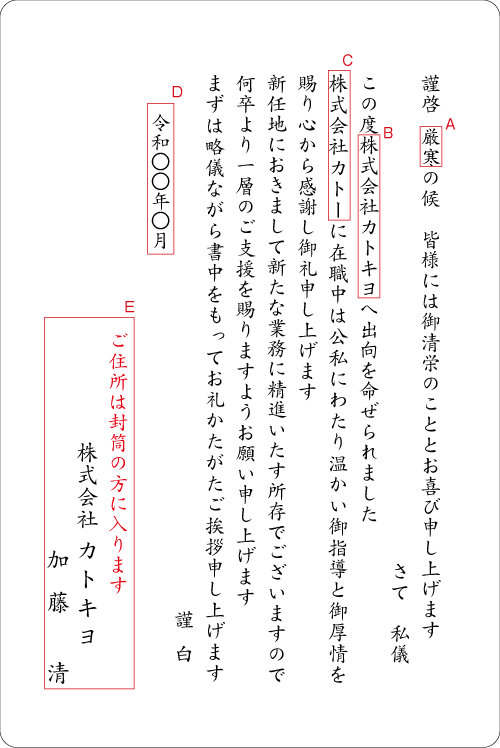 謹啓 厳寒の候 皆様には御清栄のこととお喜び申し上げます
さて 私儀
この度株式会社カトキヨへ出向を命ぜられました
株式会社カトーに在職中は公私にわたり温かい御指導と御厚情を
賜り心から感謝し御礼申し上げます
新任地におきまして新たな業務に精進いたす所存でございますので
何卒より一層のご支援を賜りますようお願い申し上げます
まずは略儀ながら書中をもってお礼かたがたご挨拶申し上げます
謹白
令和〇〇年〇月
ご住所は封筒の方に入ります
株式会社 カトキヨ
加藤 清
A
B
C
D
E